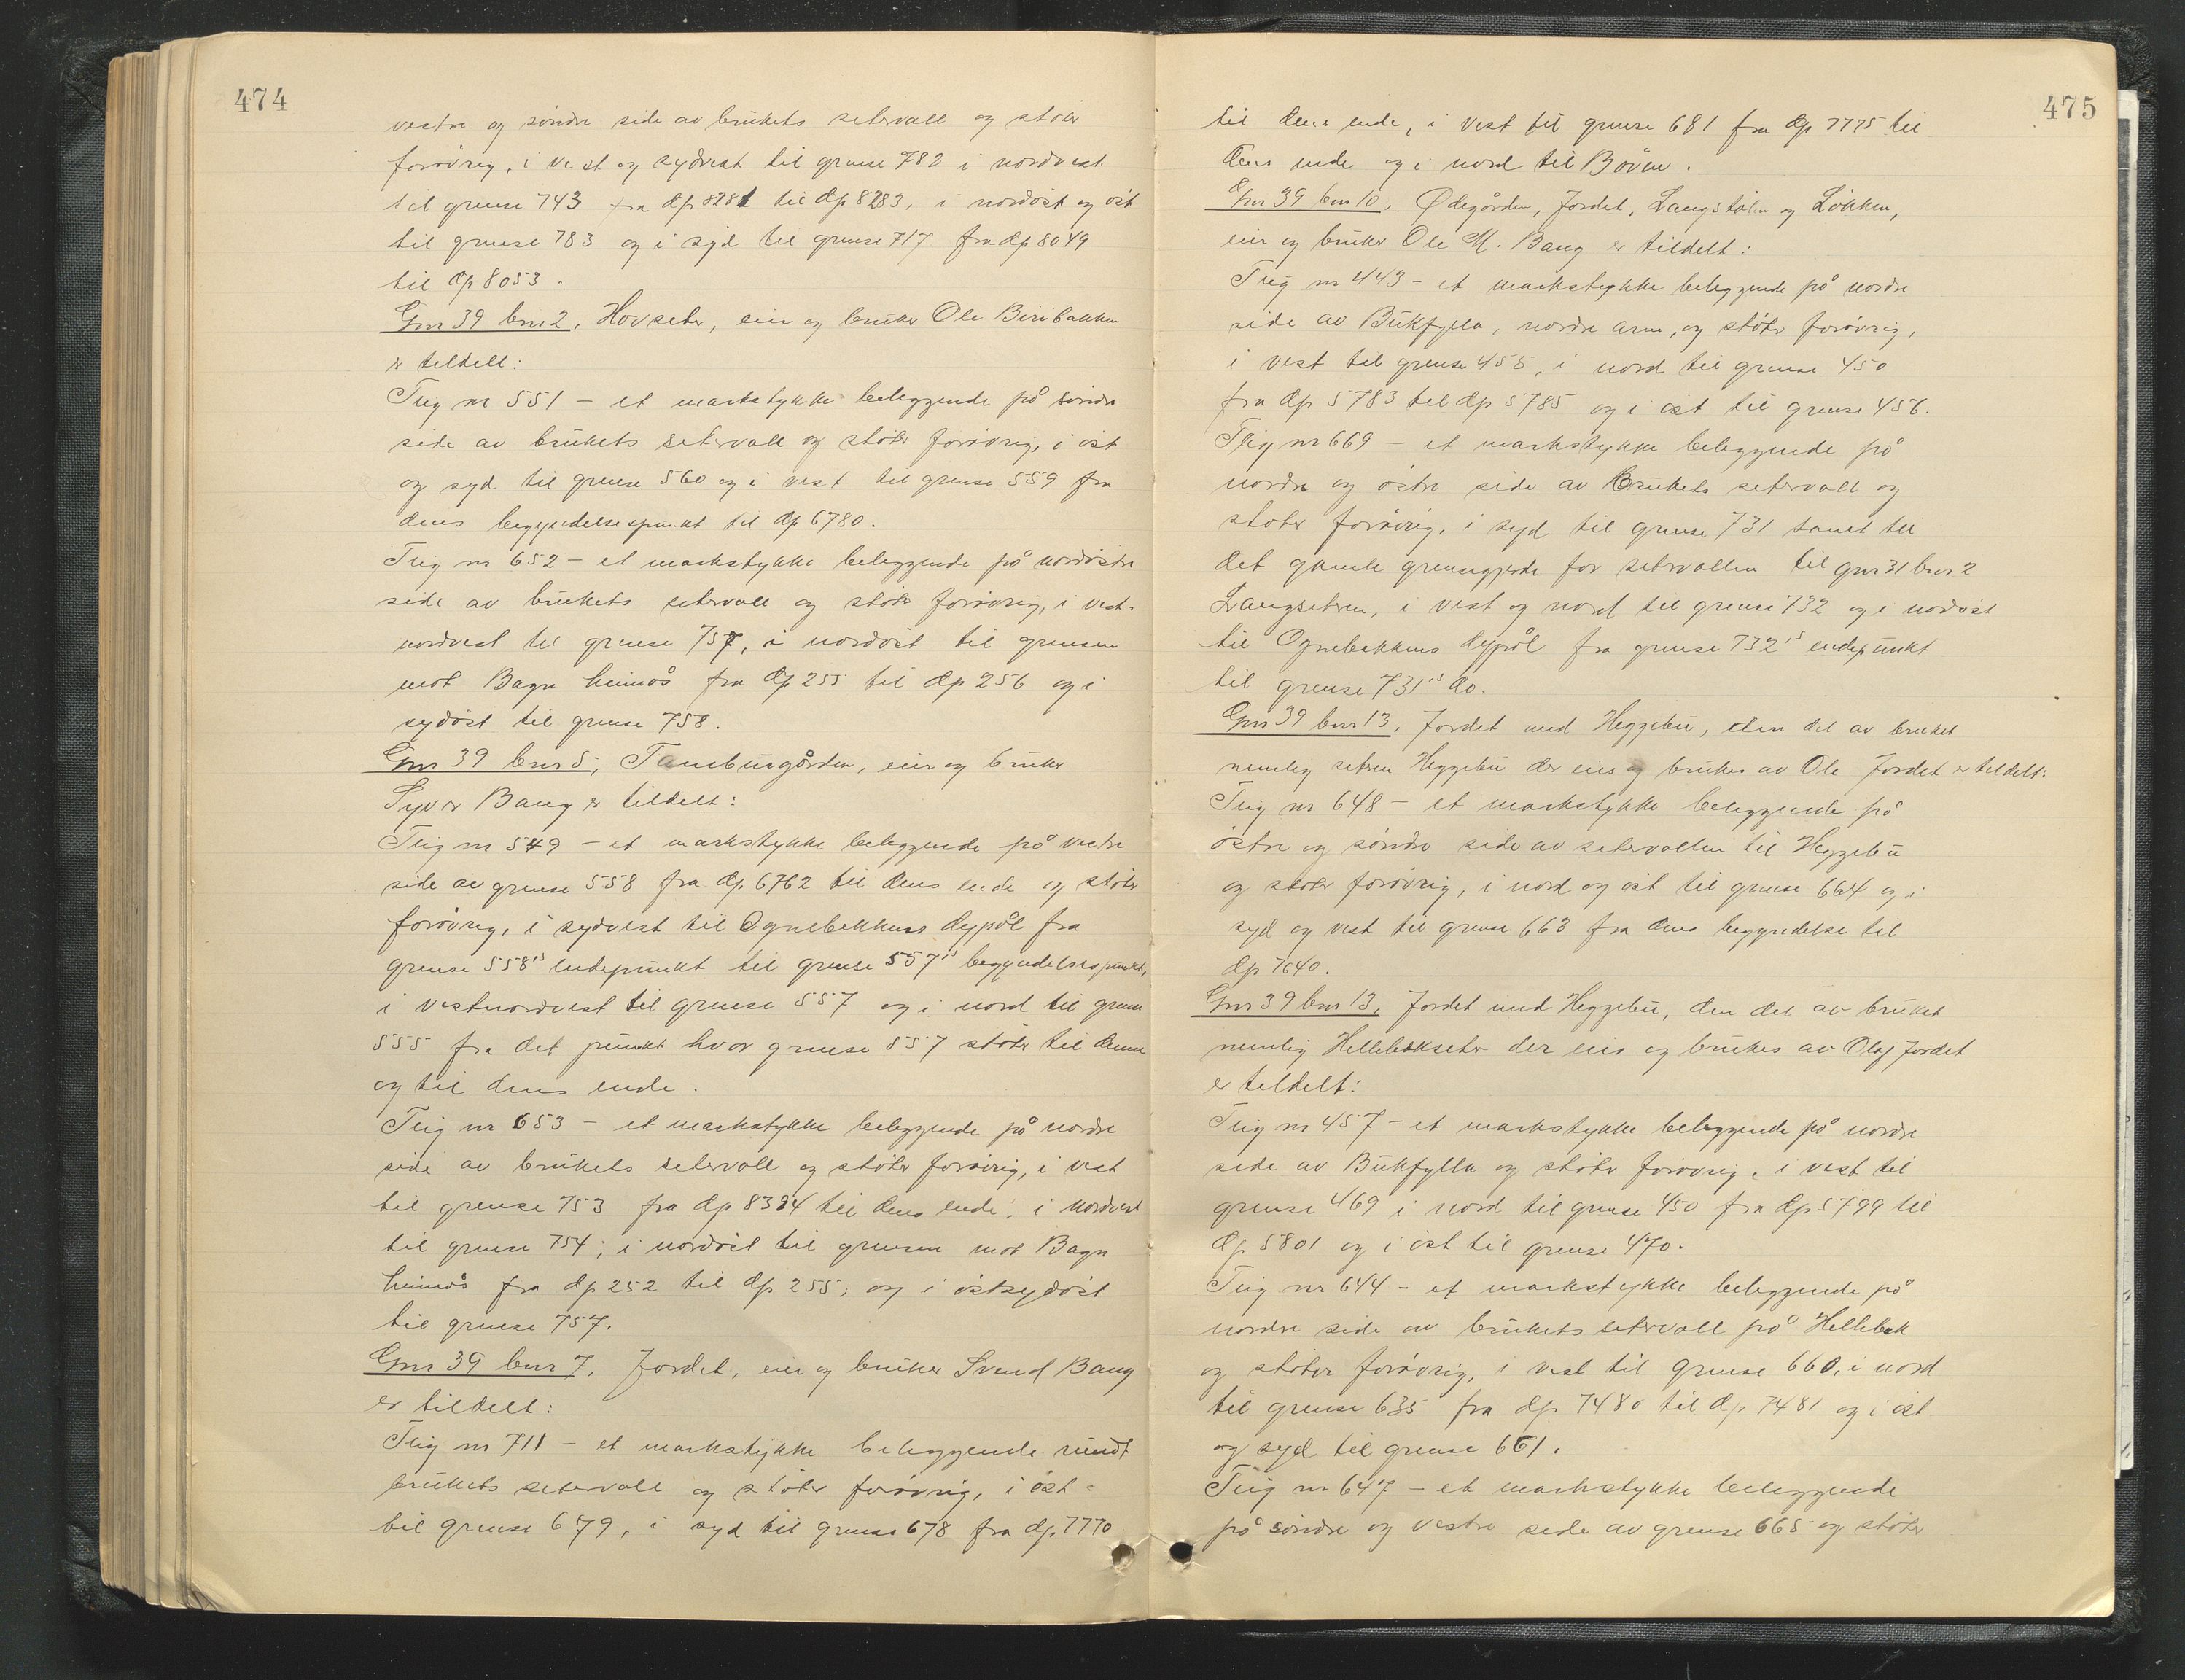 474
vestre og søndre side av brukets setervall og støter
forøvrig, i vest og sydvest til grense 782 i nordvest
til grense 743 fra dp 8281 til dp 8283, i nordøst og øst
til grense 783 og i syd til grense 717 fra dp 8049
til dp 8053.
Gnr 39 bnr 2, Hovseter, eier og bruker Ole Biribakken
er tildelt:
Teig nr 551 – et markstykke beliggende på søndre
side av brukets setervall og støter forøvrig, i øst
og syd til grense 560 og i vest til grense 559 fra
dens begyndelsespunkt til dp 6780.
Teig nr 652 – et markstykke beliggende på nordøstre
side av brukets setervall og støter forøvrig, i vest-
nordvest til grense 757, i nordøst til grensen
mot Bagn heimås fra dp 255 til dp 256 og i
sydøst til grense 758.
Gnr 39 bnr 5, Tamburgården, eier og bruker
Syver Bang er tildelt:
Teig nr 549 – et markstykke beliggende på vestre
side av grense 558 fra dp 6762 til dens ende og støter
forøvrig, i sydvest til Ognebekkens dypål fra
grense 558's endepunkt til grense 557's begyndelsespunkt,
i vestnordvest til grense 557 og i nord til grense
555 fra det punkt hvor grense 557 støter til denne
og til dens ende.
Teig nr 653 – et markstykke beliggende på nordre
side av brukets setervall og støter forøvrig, i vest
til grense 753 fra dp 8394 til dens ende, i nordvest
til grense 754; i nordøst til grensen mot Bagn
heimås fra dp 252 til dp 255; og i østsydøst
til grense 757.
Gnr 39 bnr 7, Jordet, eier og bruker Svend Bang
er tildelt:
Teig nr 711 – et markstykke beliggende rundt
brukets setervall og støter forøvrig, i øst
til grense 679, i syd til grense 678 fra dp. 7770
475
til dens ende, i vest til grense 681 fra dp 7775 til
dens ende og i nord til Bøvre.
Gnr 39 bnr 10, Ødegården, Jordet, Langstølen og Løkken,
eier og bruker Ole M. Bang er tildelt:
Teig nr 443 – et markstykke beliggende på nordre
side av Bukfylla, nordre arm, og støter forøvrig,
i vest til grense 455, i nord til grense 450
fra dp 5783 til dp 5785 og i øst til grense 456.
Teig nr 669 – et markstykke beliggende på
nordre og østre side av brukets setervall og
støter forøvrig, i syd til grense 731 samt til
det gamle grensegjerde for setervollen til gnr 31 bnr 2
Langseteren, i vest og nord til grense 732 og i nordøst
til Ognebekkens dypål fra grense 732's endepunkt
til grense 731's do.
Gnr 39 bnr 13, Jordet med Heggebu, den del av bruket
nemlig seteren Heggebu der eies og brukes av Ole Jordet er tildelt:
Teig nr 648 – et markstykke beliggende på
østre og søndre side av setervollen til Heggebu
og støter forøvrig, i nord og øst til grense 664 og i
syd og vest til grense 663 fra dens begyndelse til
dp 7640.
Gnr 39 bnr 13, Jordet med Heggebu, den del av bruket
nemlig Hellebækseter der eies og brukes av Olaf Jordet
er tildelt:
Teig nr 457 – et markstykke beliggende på nordre
side av Bukfylla og støter forøvrig, i vest til
grense 469 i nord til grense 450 fra dp 5799 til
dp 5801 og i øst til grense 470.
Teig nr 644 – et markstykke beliggende på
nordre side av brukets setervoll på Hellebæk
og støter forøvrig, i vest til grense 660, i nord
til grense 635 fra dp. 7480 til dp. 7481 og i øst
og syd til grense 661.
Teig nr 647 – et markstykke beliggende
på søndre og vestre side av grense 665 og støter